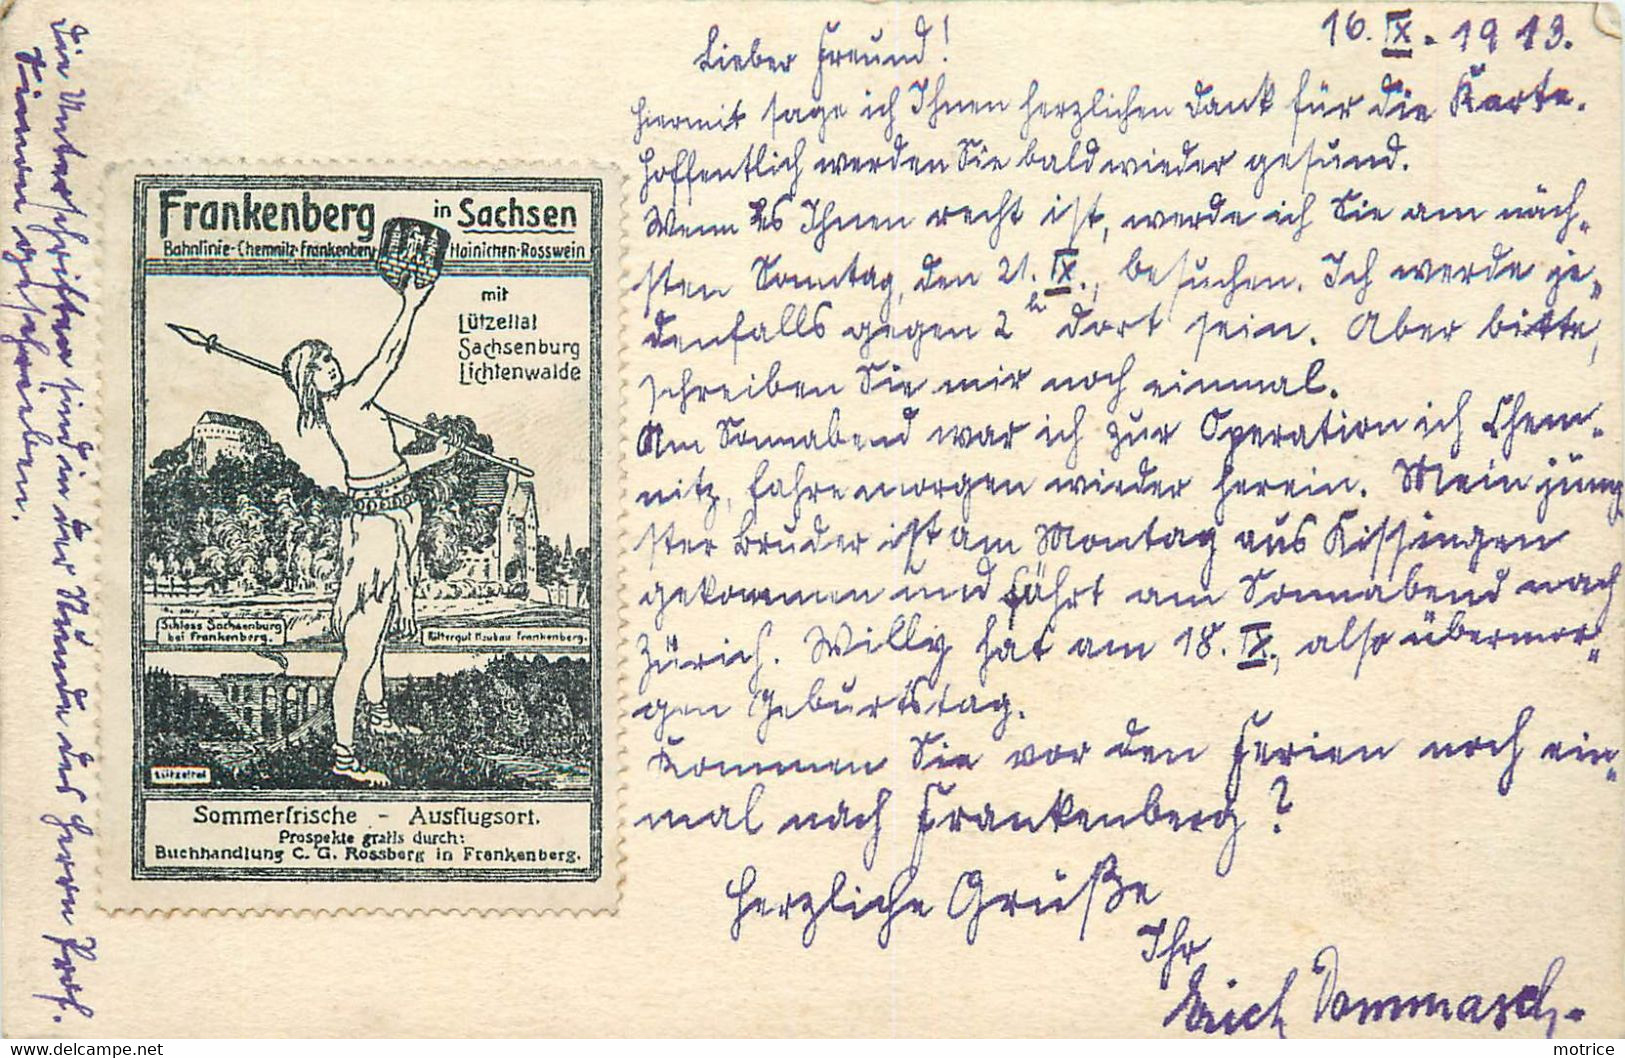 16. IX. 1913.
Lieber Freund!
hiermit sage ich Ihnen herzlichen Dank für die Karte.
Hoffentlich werden Sie bald wieder gesund.
Wenn es Ihnen recht ist, werde ich Sie am näch-
sten Sonntag, den 21. IX., besuchen. Ich werde je-
denfalls gegen 2 h dort sein. Aber bitte,
schreiben Sie mir noch einmal.
Am Sonnabend war ich zur Operation ich Chem-
nitz, fahre morgen wieder herein. Mein jüng
ster Bruder ist am Montag aus Kissingen
gekommen und fährt am Sonnabend nach
Zürich. Willy hat am 18. IX., also übermor-
gen Geburtstag.
Kommen Sie vor den Ferien noch ein-
mal nach Frankenberg?
Herzliche Grüße
Ihr
Erich Dommasch.
Die Unterschriften sind in der Stunde des Herrn Prof.
geschrieben.
Frankenberg in Sachsen
Bahnlinie-Chemnitz-Frankenberg Hainichen-Rosswein
mit
Lützeltal
Sachsenburg
Lichtenwalde
Schloss Sachsenburg
bei Frankenberg.
Rittergut Neubau Frankenberg.
Lützeltal
Sommerfrische - Ausflugsort.
Prospekte gratis durch:
Buchhandlung C. G. Rossberg in Frankenberg.
motrice